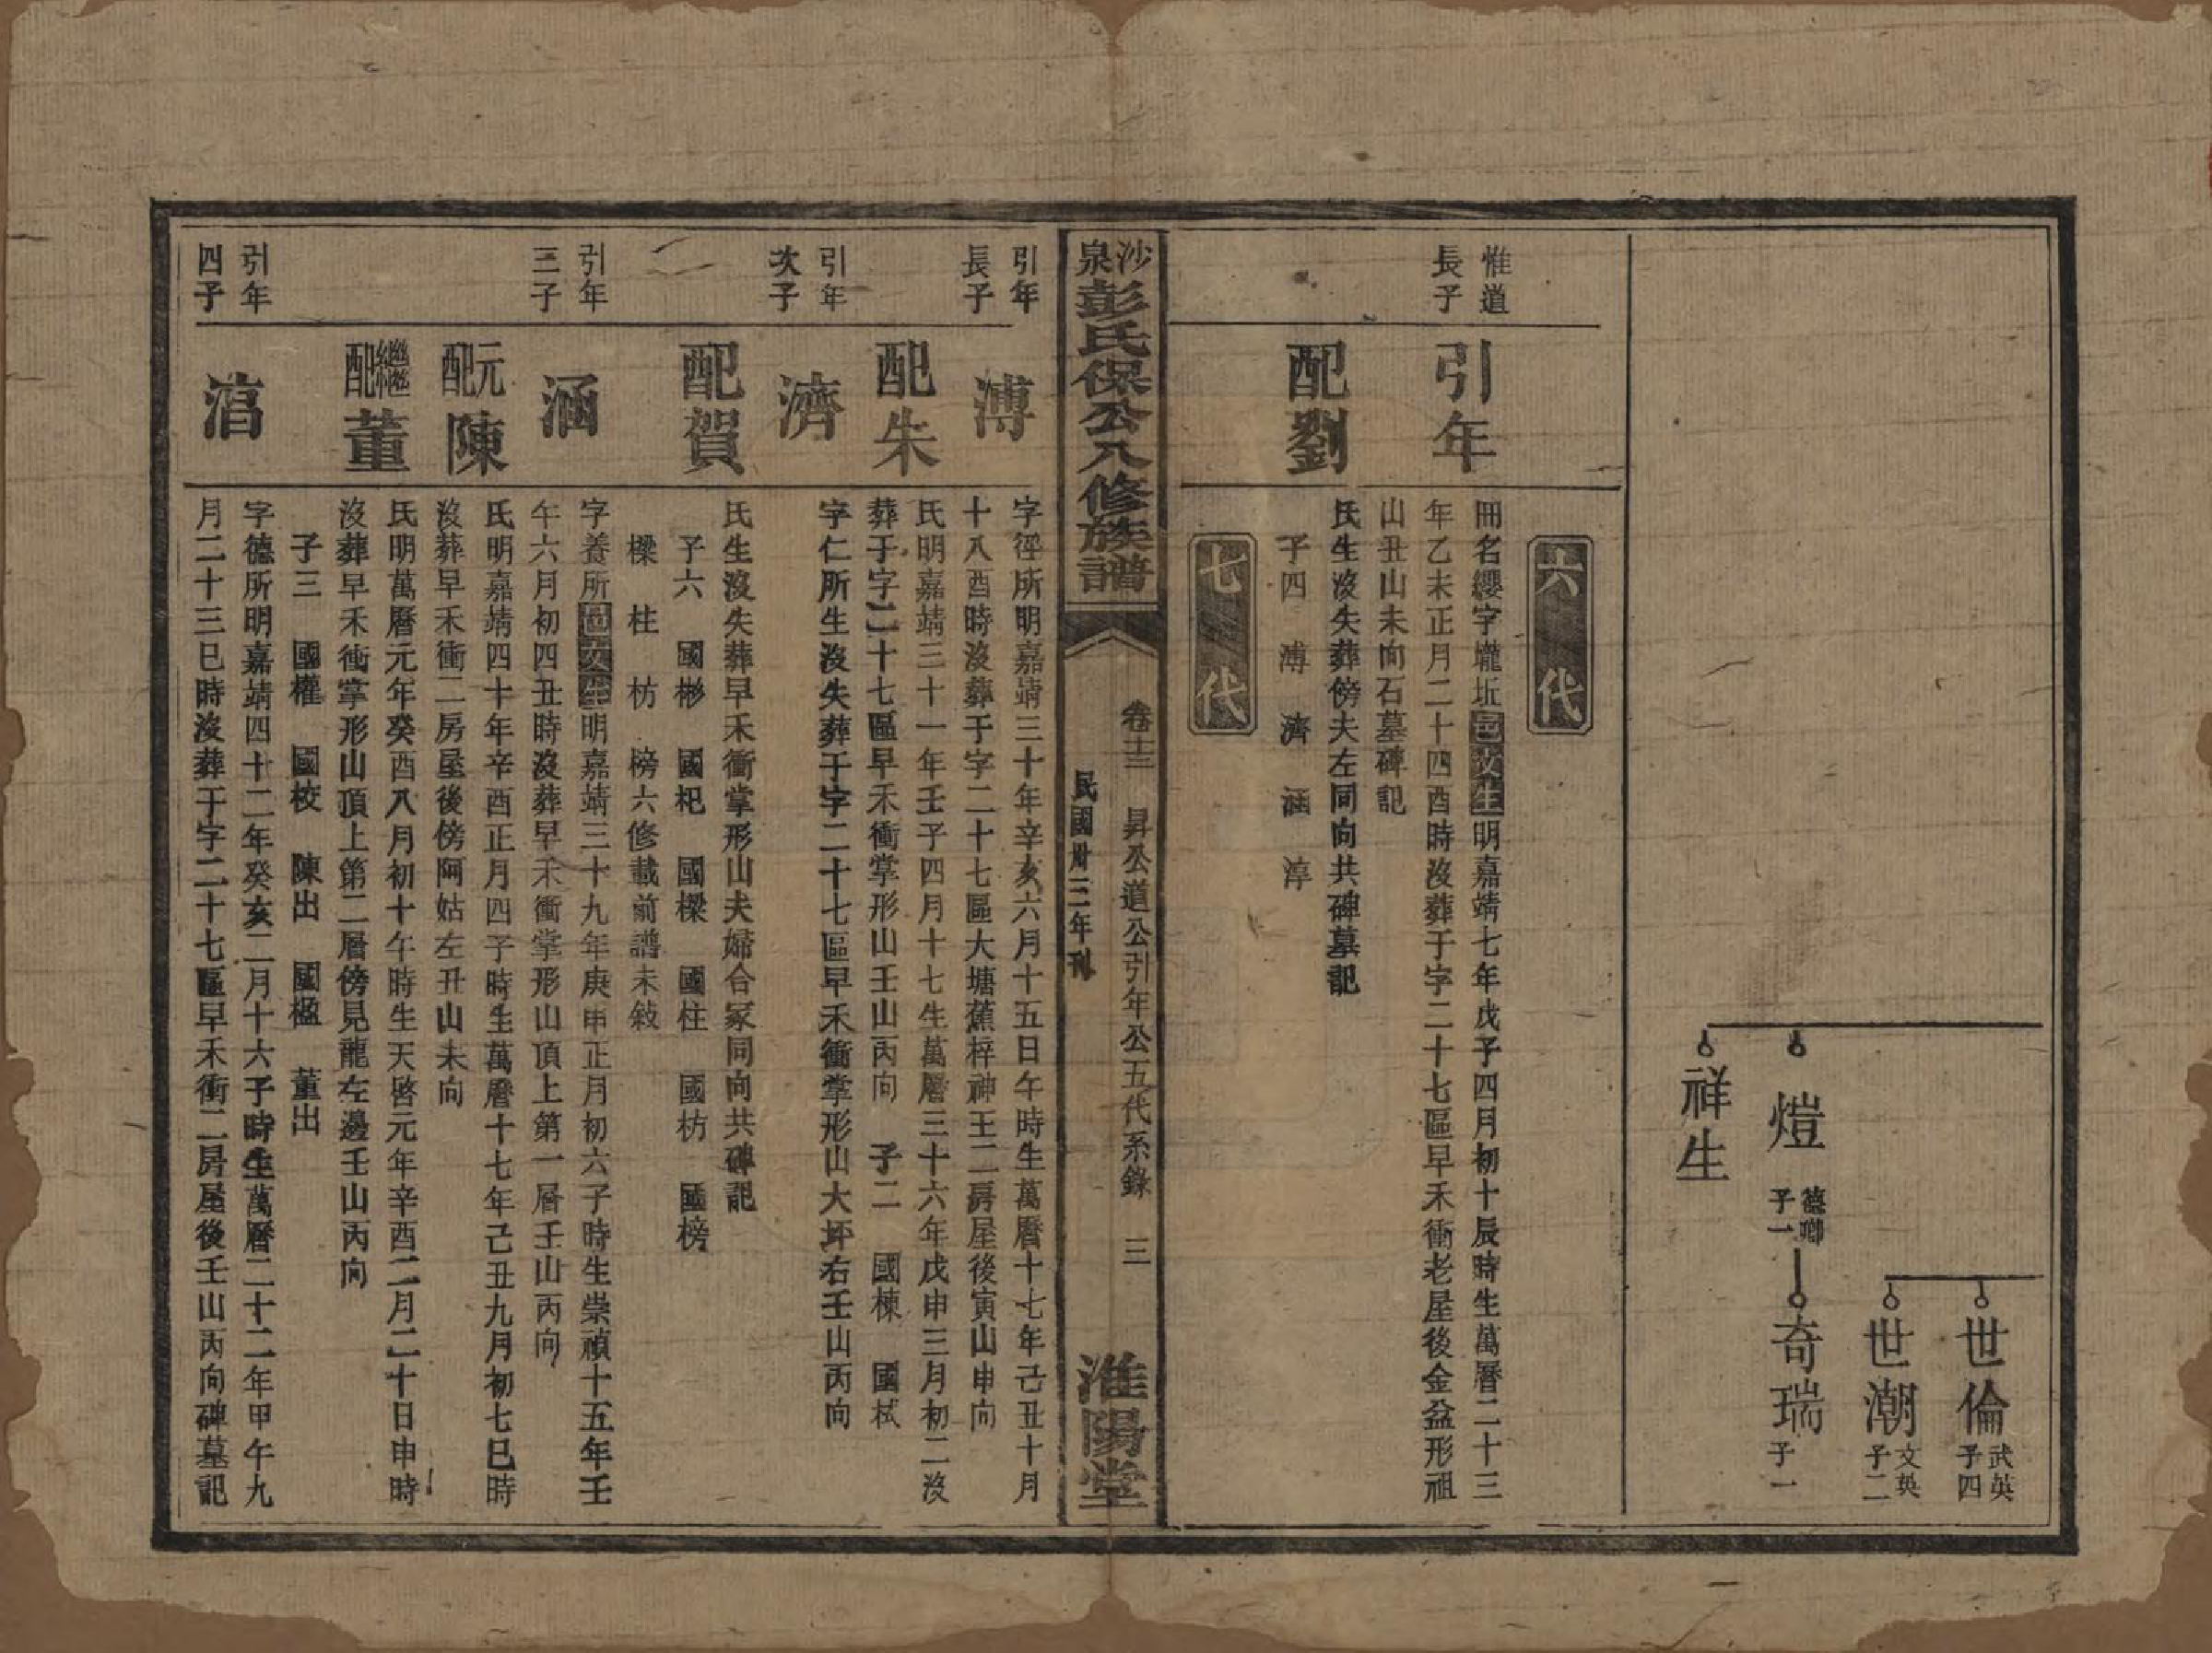 世倫 武英子四
世潮 文英子二
燈 德卿子一 奇瑞 子一
祥生
六代
惟道長子
引年
冊名纓字壠坵邑庠生明嘉靖七年戊子四月初十辰時生萬曆二十三
年乙未正月二十四酉時沒葬于字二十七區早禾衝老屋後金盆形祖
山丑山未向石墓碑記
配劉
氏生沒失葬傍夫左同向共碑墓記
子四 溥 濟 涵 淳
七代
沙泉彭氏保公八修族譜
卷十三 昇公道公引年公五代系錄 三
民國卅三年刊
淮陽堂
引年長子
溥
字徑所明嘉靖三十年辛亥六月十五日午時生萬曆十七年己丑十月
十八酉時沒葬于字二十七區大塘蕉梓神王二房屋後寅山申向
配朱
氏明嘉靖三十一年壬子四月十七生萬曆三十六年戊申三月初二沒
葬于字二十七區早禾衝掌形山壬山丙向 子二 國棟 國栻
引年次子
濟
字仁所生沒失葬于字二十七區早禾衝掌形山大坪右壬山丙向
配賀
氏生沒失葬早禾衝掌形山夫婦合冢同向共碑記
子六 國彬 國杞 國樑 國柱 國枋 國榜
樑 柱 枋 榜六修載前譜未敘
引年三子
涵
字養所邑庠生明嘉靖三十九年庚申正月初六子時生崇禎十五年壬
午六月初四丑時沒葬早禾衝掌形山頂上第一層壬山丙向
元配陳
氏明嘉靖四十年辛酉正月四子時生萬曆十七年己丑九月初七巳時
沒葬早禾衝二房屋後傍阿姑左丑山未向
繼配董
氏明萬曆元年癸酉八月初十午時生天啓元年辛酉二月二十日申時
沒葬早禾衝掌形山頂上第二層傍見龍左邊壬山丙向
子三 國權 國校 陳出 國楹 董出
引年四子
淳
字德所明嘉靖四十二年癸亥二月十六子時生萬曆二十二年甲午九
月二十三巳時沒葬于字二十七區早禾衝二房屋後壬山丙向碑墓記